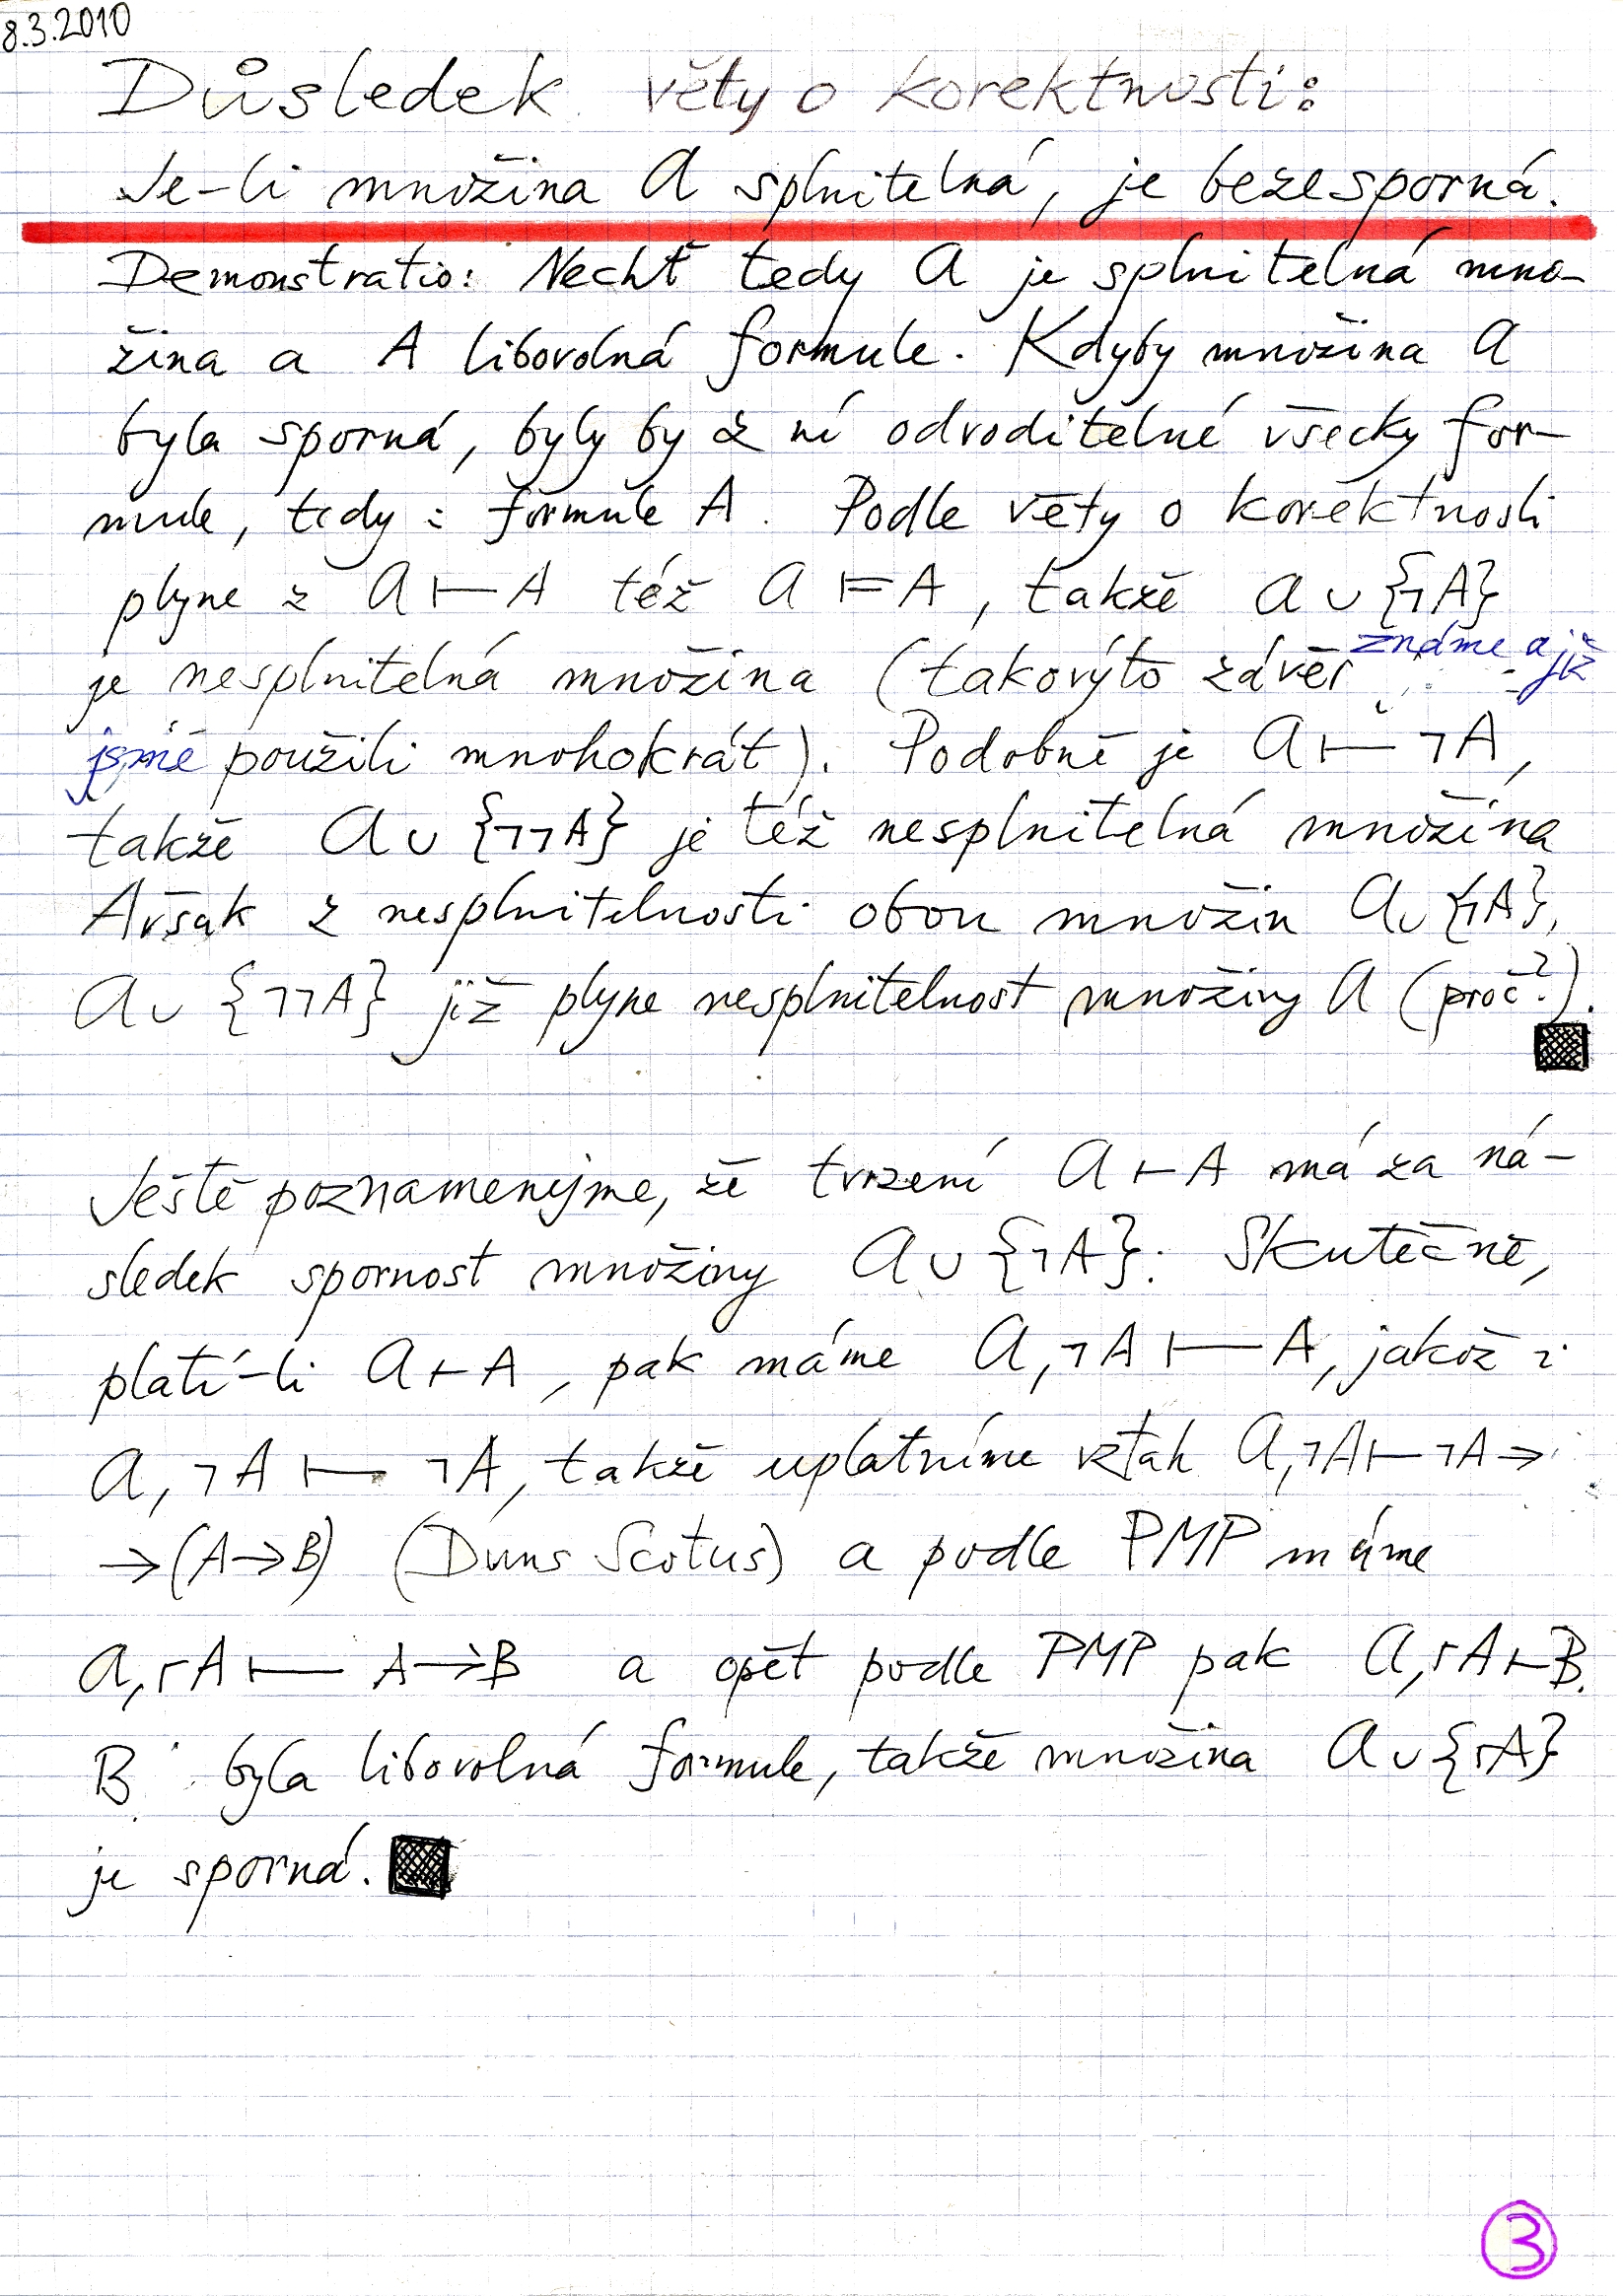 8.3.2010
Důsledek věty o korektnosti:
Je-li množina 𝒜 splnitelná, je bezesporná.
Demonstratio: Nechť tedy 𝒜 je splnitelná mno-
žina a A libovolná formule. Kdyby množina 𝒜
byla sporná, byly by z ní odvoditelné všecky for-
mule, tedy i formule A. Podle věty o korektnosti
plyne z 𝒜 ⊢ A též 𝒜 ⊨ A, takže 𝒜 ∪ {¬A}
je nesplnitelná množina (takovýto závěr známe a již
jsme použili mnohokrát). Podobně je 𝒜 ⊢ ¬A,
takže 𝒜 ∪ {¬¬A} je též nesplnitelná množina
Avšak z nesplnitelnosti obou množin 𝒜 ∪ {¬A},
𝒜 ∪ {¬¬A} již plyne nesplnitelnost množiny 𝒜 (proč?).
Ještě poznamenejme, že tvrzení 𝒜 ⊢ A má za ná-
sledek spornost množiny 𝒜 ∪ {¬A}. Skutečně,
platí-li 𝒜 ⊢ A, pak máme 𝒜, ¬A ⊢ A, jakož i
𝒜, ¬A ⊢ ¬A, takže uplatníme vztah 𝒜, ¬A ⊢ ¬A →
→ (A → B) (Duns Scotus) a podle PMP máme
𝒜, ¬A ⊢ A → B a opět podle PMP pak 𝒜, ¬A ⊢ B.
B byla libovolná formule, takže množina 𝒜 ∪ {¬A}
je sporná.
3